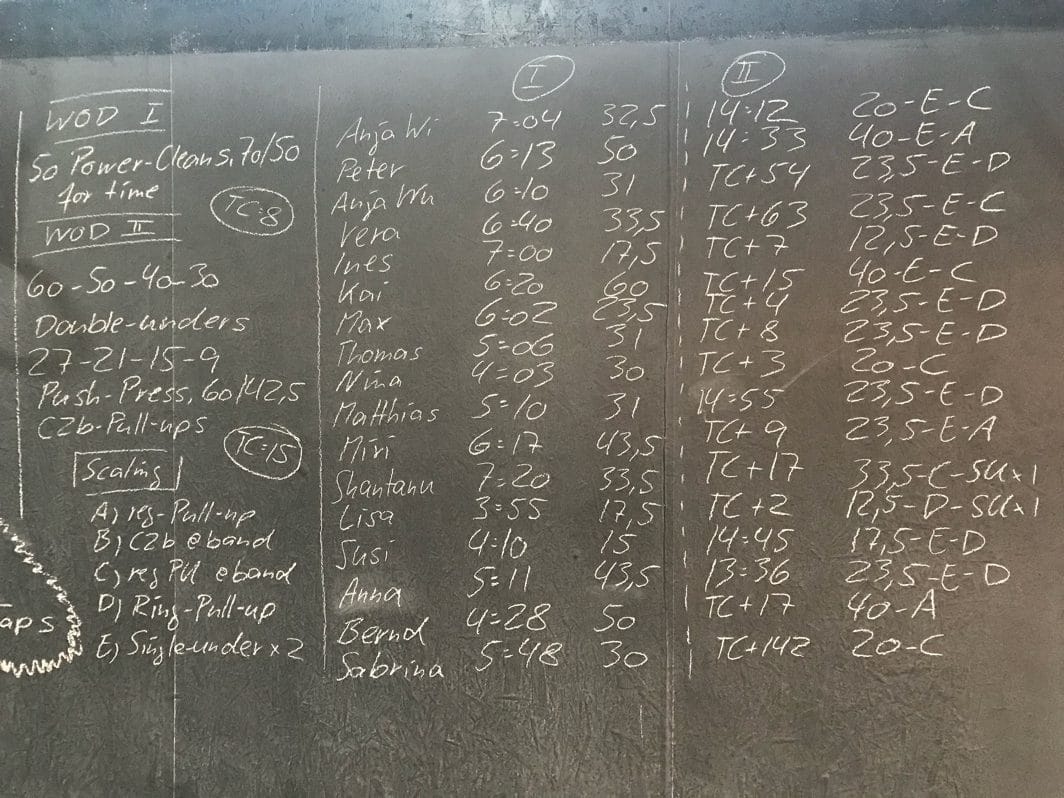 WOD I
50 Power-Cleans, 70/50
for time
TC=8
WOD II
60-50-40-30
Double-unders
27-21-15-9
Push-Press, 60/42,5
C2b-Pull-ups
TC=15
Scaling
A) reg-Pull-up
B) C2b @band
C) reg PU @band
D) Ring-Pull-up
E) Single-under x 2
aps
I II
Anja Wi 7:04 32,5 14:12 20-E-C
Peter 6:13 50 14:33 40-E-A
Anja Wu 6:10 31 TC+54 23,5-E-D
Vera 6:40 33,5 TC+63 23,5-E-C
Ines 7:00 17,5 TC+7 12,5-E-D
Kai 6:20 60 TC+15 40-E-C
Max 6:02 23,5 TC+4 23,5-E-D
Thomas 5:06 31 TC+8 23,5-E-D
Nina 4:03 30 TC+3 20-C
Matthias 5:10 31 14:55 23,5-E-D
Miri 6:17 43,5 TC+9 23,5-E-A
Shantanu 7:20 33,5 TC+17 33,5-C-SUx1
Lisa 3:55 17,5 TC+2 12,5-D-SUx1
Susi 4:10 15 14:45 17,5-E-D
Anna 5:11 43,5 13:36 23,5-E-D
Bernd 4:28 50 TC+17 40-A
Sabrina 5:48 30 TC+142 20-C